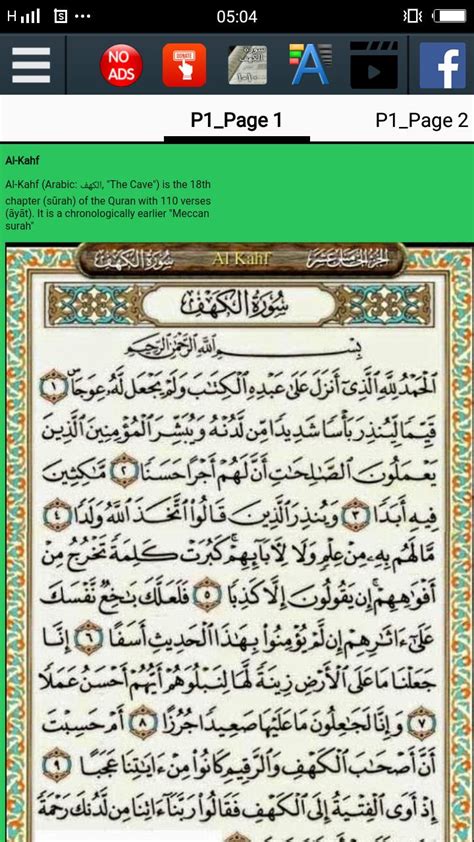 H 05:04
NO ADS
DONATE
سورة الكهف
A
f
P1_Page 1 P1_Page 2
Al-Kahf
Al-Kahf (Arabic: الكهف, "The Cave") is the 18th
chapter (sūrah) of the Quran with 110 verses
(āyāt). It is a chronologically earlier "Meccan
surah"
سُورَةُ الكَهْفِ Al Kahf الجزء الخامس عشر
سُورَةُ الكَهْفِ
بِسْمِ اللَّهِ الرَّحْمَٰنِ الرَّحِيمِ
الْحَمْدُ لِلَّهِ الَّذِي أَنْزَلَ عَلَىٰ عَبْدِهِ الْكِتَابَ وَلَمْ يَجْعَلْ لَهُ عِوَجًا ۜ ١
قَيِّمًا لِيُنْذِرَ بَأْسًا شَدِيدًا مِنْ لَدُنْهُ وَيُبَشِّرَ الْمُؤْمِنِينَ الَّذِينَ
يَعْمَلُونَ الصَّالِحَاتِ أَنَّ لَهُمْ أَجْرًا حَسَنًا ٢ مَاكِثِينَ
فِيهِ أَبَدًا ٣ وَيُنْذِرَ الَّذِينَ قَالُوا اتَّخَذَ اللَّهُ وَلَدًا ٤
مَا لَهُمْ بِهِ مِنْ عِلْمٍ وَلَا لِآبَائِهِمْ ۚ كَبُرَتْ كَلِمَةً تَخْرُجُ مِنْ
أَفْوَاهِهِمْ ۚ إِنْ يَقُولُونَ إِلَّا كَذِبًا ٥ فَلَعَلَّكَ بَاخِعٌ نَفْسَكَ
عَلَىٰ آثَارِهِمْ إِنْ لَمْ يُؤْمِنُوا بِهَٰذَا الْحَدِيثِ أَسَفًا ٦ إِنَّا
جَعَلْنَا مَا عَلَى الْأَرْضِ زِينَةً لَهَا لِنَبْلُوَهُمْ أَيُّهُمْ أَحْسَنُ عَمَلًا
٧ وَإِنَّا لَجَاعِلُونَ مَا عَلَيْهَا صَعِيدًا جُرُزًا ٨ أَمْ حَسِبْتَ
أَنَّ أَصْحَابَ الْكَهْفِ وَالرَّقِيمِ كَانُوا مِنْ آيَاتِنَا عَجَبًا ٩
إِذْ أَوَى الْفِتْيَةُ إِلَى الْكَهْفِ فَقَالُوا رَبَّنَا آتِنَا مِنْ لَدُنْكَ رَحْمَةً